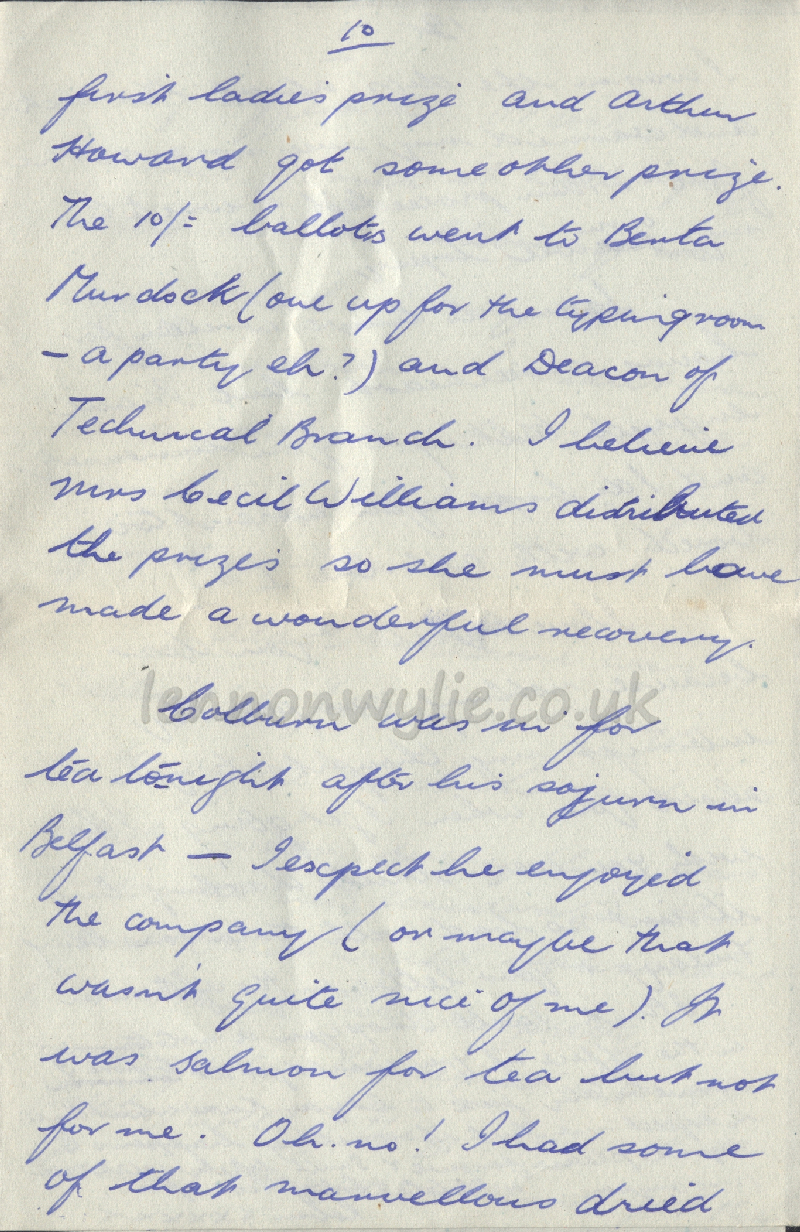 10
first ladies prize and Arthur
Howard got some other prize.
The 10/= ballots went to Berta
Murdock (one up for the typing room
– a party eh?) and Deacon of
Technical Branch. I believe
Mrs Cecil Williams distributed
the prizes so she must have
made a wonderful recovery.
lennonwylie.co.uk
Colburn was in for
tea tonight after his sojurn in
Belfast — I expect he enjoyed
the company (or maybe that
wasn't quite nice of me). It
was salmon for tea but not
for me. Oh no! I had some
of that marvellous dried